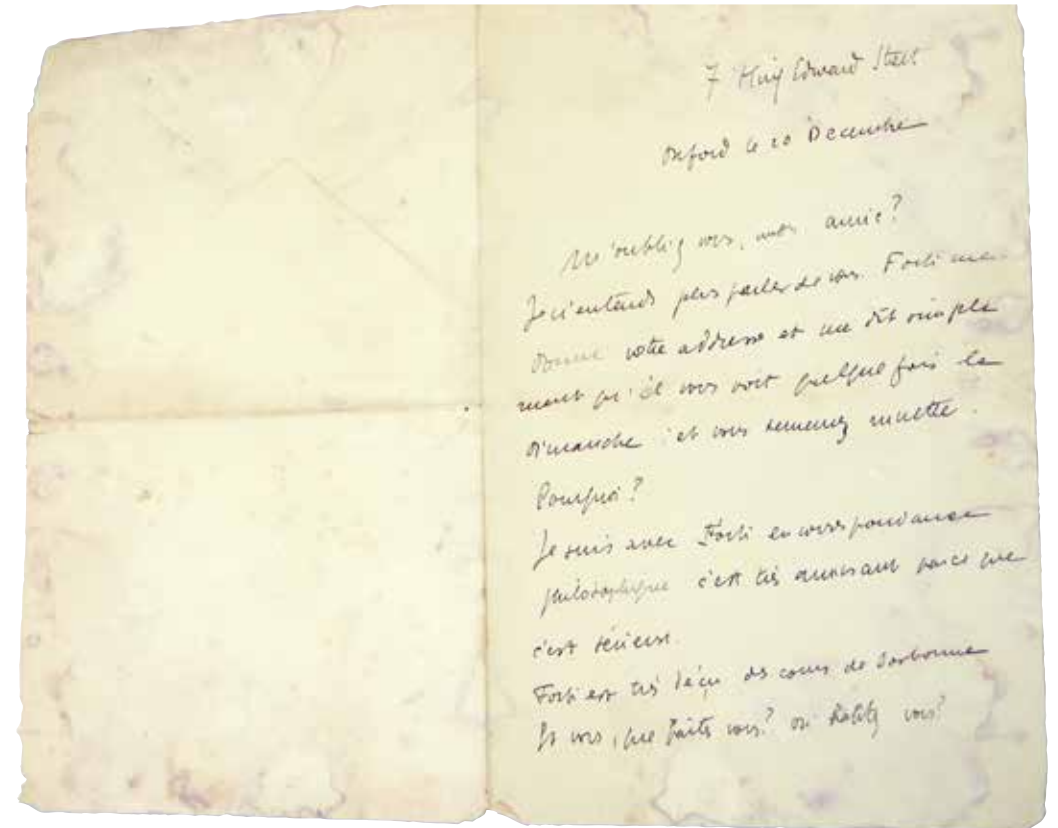 7 King Edward Street
Oxford le 20 Decembre
M'oubliez vous, mon amie?
Je n'entends plus parler de vous. Forti me
donne votre addresse et me dit simple
ment qu'il vous voit quelque fois le
dimanche : et vous demeurez muette.
Pourquoi?
Je suis avec Forti en correspondance
philosophique c'est très amusant parce que
c'est sérieux.
Forti est très déçu des cours de Sorbonne
Et vous, que faites vous? où habitez vous?